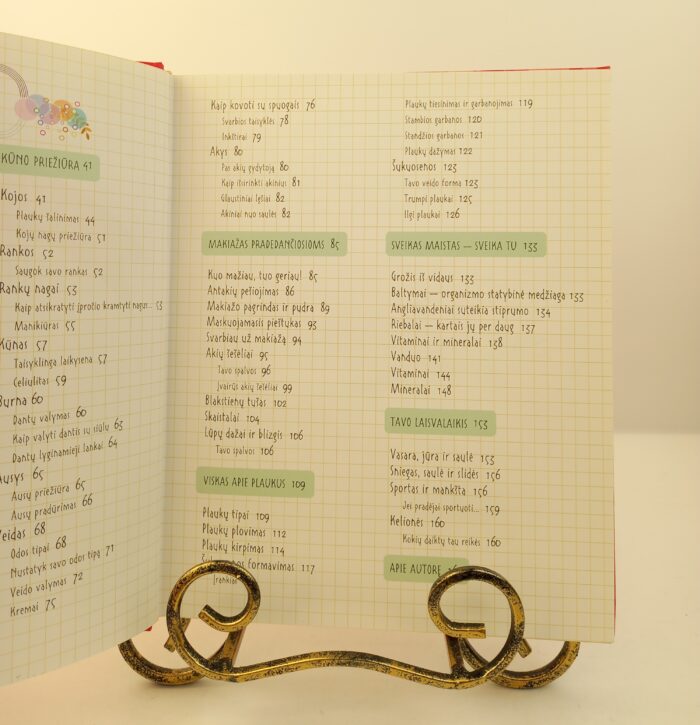 KŪNO PRIEŽIŪRA 41
Kojos 41
Plaukų šalinimas 44
Kojų nagų priežiūra 51
Rankos 52
Saugok savo rankas 52
Rankų nagai 53
Kaip atsikratyti įpročio kramtyti nagus... 53
Manikiūras 55
Kūnas 57
Taisyklinga laikysena 57
Celiulitas 59
Burna 60
Dantų valymas 60
Kaip valyti dantis su siūlu 63
Dantų lyginamieji lankai 64
Ausys 65
Ausų priežiūra 65
Ausų pradūrimas 66
Veidas 68
Odos tipai 68
Nustatyk savo odos tipą 71
Veido valymas 72
Kremai 75
Kaip kovoti su spuogais 76
Svarbios taisyklės 78
Inkštirai 79
Akys 80
Pas akių gydytoją 80
Kaip išsirinkti akinius 81
Glaustiniai lęšiai 82
Akiniai nuo saulės 82
MAKIAŽAS PRADEDANČIOSIOMS 85
Kuo mažiau, tuo geriau! 85
Antakių pešiojimas 86
Makiažo pagrindas ir pudra 89
Maskuojamasis pieštukas 93
Svarbiau už makiažą 94
Akių šešėliai 95
Tavo spalvos 96
Įvairūs akių šešėliai 99
Blakstienų tušas 102
Skaistalai 104
Lūpų dažai ir blizgis 106
Tavo spalvos 106
VISKAS APIE PLAUKUS 109
Plaukų tipai 109
Plaukų plovimas 112
Plaukų kirpimas 114
formavimas 117
Įrankiai
Plaukų tiesinimas ir garbanojimas 119
Stambios garbanos 120
Standžios garbanos 121
Plaukų dažymas 122
Šukuosenos 123
Tavo veido forma 123
Trumpi plaukai 125
Ilgi plaukai 126
SVEIKAS MAISTAS — SVEIKA TU 133
Grožis iš vidaus 133
Baltymai — organizmo statybinė medžiaga 133
Angliavandeniai suteikia stiprumo 134
Riebalai — kartais jų per daug 137
Vitaminai ir mineralai 138
Vanduo 141
Vitaminai 144
Mineralai 148
TAVO LAISVALAIKIS 153
Vasara, jūra ir saulė 153
Sniegas, saulė ir slidės 156
Sportas ir mankšta 156
Jei pradėjai sportuoti... 159
Kelionės 160
Kokių daiktų tau reikės 160
APIE AUTORĘ